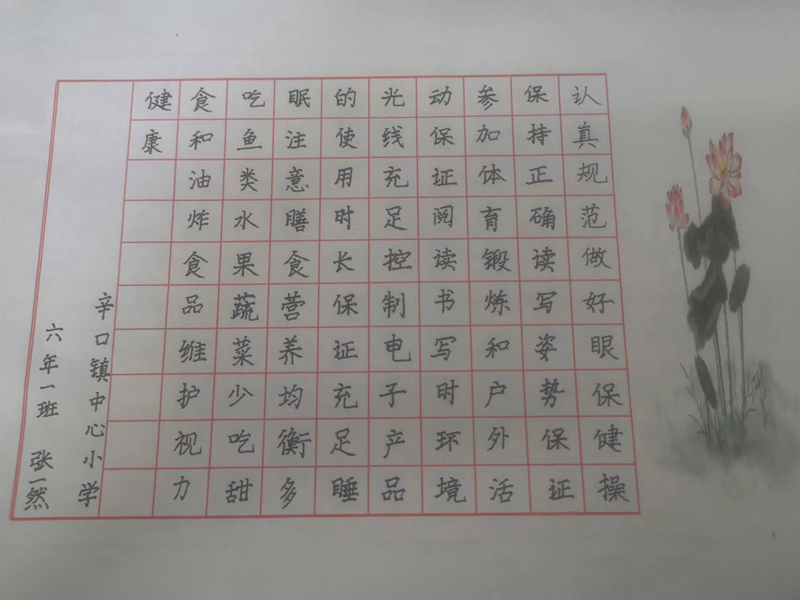 认真规范做好眼保健操
保持正确读写姿势保证
参加体育锻炼和户外活
动保证阅读书写时环境
光线充足控制电子产品
的使用时长保证充足睡
眠注意膳食营养均衡多
吃鱼类水果蔬菜少吃甜
食和油炸食品维护视力
健康
辛口镇中心小学
六年一班 张一然